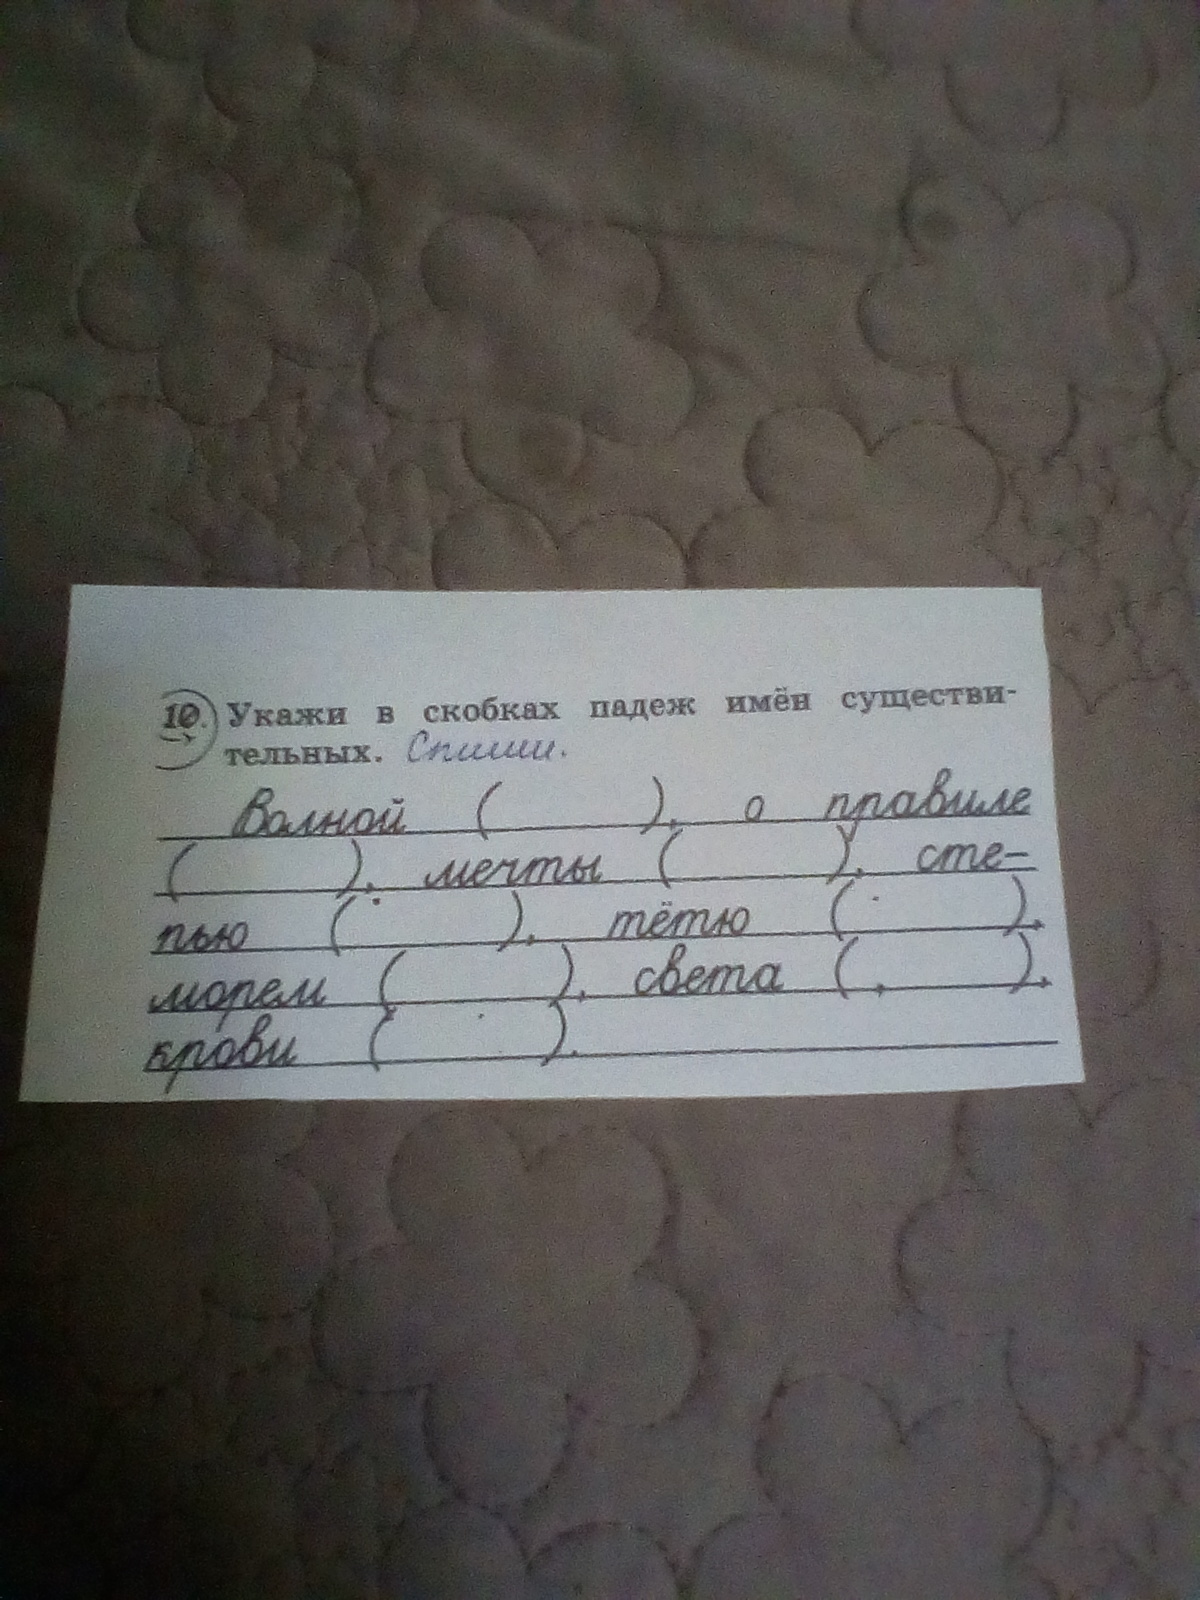 10. Укажи в скобках падеж имён существи-
тельных. Спиши.
Волной ( ), о правиле
( ), мечты ( ), сте-
пью ( ), тётю ( ),
морем ( ), света ( ),
крови ( ).